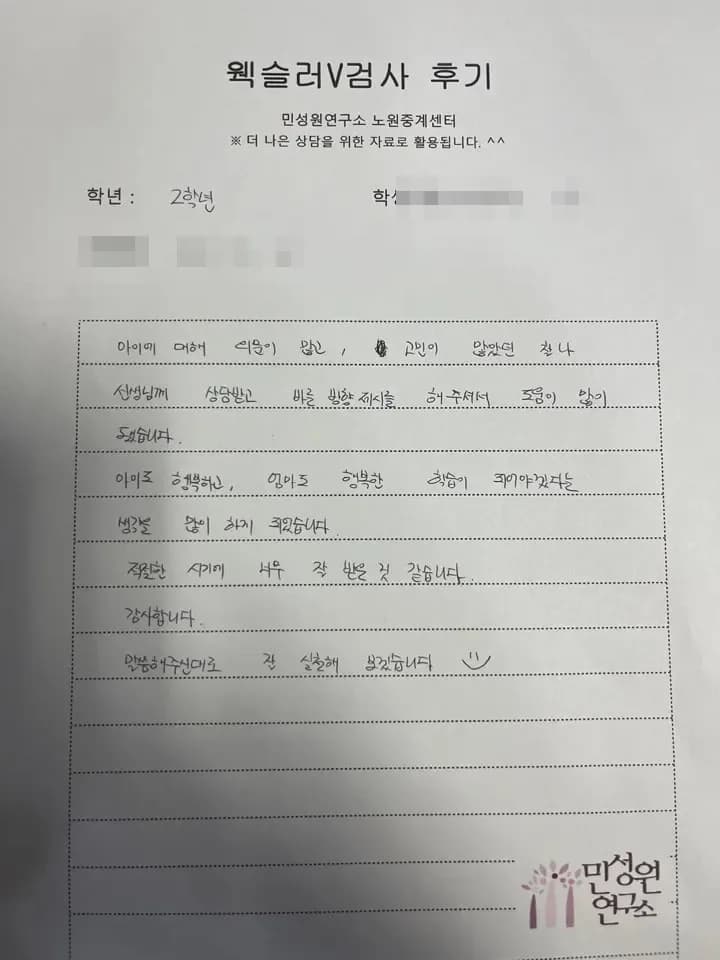 웩슬러V검사 후기
민성원연구소 노원중계센터
※ 더 나은 상담을 위한 자료로 활용됩니다. ^^
학년 : 2학년 학생
아이에 대해 의문이 많고, 고민이 많았던 찰나
선생님께 상담받고 바른 방향 제시를 해주셔서 도움이 많이
됐습니다.
아이도 행복하고, 엄마도 행복한 학습이 되어야겠다는
생각을 많이 하게 되었습니다.
적절한 시기에 너무 잘 받은 것 같습니다.
감사합니다.
말씀해주신대로 잘 실천해 보겠습니다
민성원
연구소